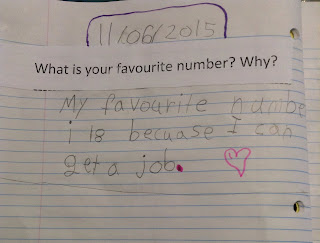 11/06/2015
What is your favourite number? Why?
My favourite numbe
i 18 becuase I can
get a job.